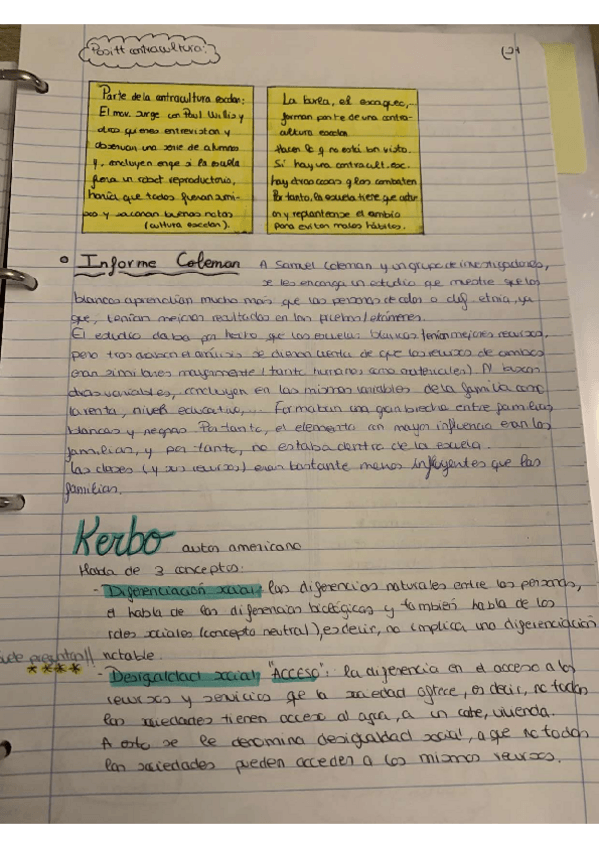 Positt contracultura:
Parte de la contracultura escolar:
El mov. surge con Paul Willis y
otros quienes entrevistan y
observan una serie de alumnos
y, concluyen enge si la escuela
fuera un robot reproductorio,
haría que todos fueran
y sacaran buenas notas
(cultura escolar).
La burla, el escaqueo,-
forman parte de una contra-
cultura escolar
Hacen lo q no está bien visto.
Si hay una contracult. esc.
hay otras cosas q las combaten
Por tanto, la escuela tiene que
y replantearse el cambio
para evitar malos hábitos.
Informe Coleman A Samuel Coleman y un grupo de investigadores,
se les encarga un estudio que muestre que los
blancos aprendían mucho más que las personas de color o dif. etnia, ya
que, tenían mejores resultados en las pruebas/exámenes.
El estudio daba por hecho que las escuelas blancas tenían mejores recursos,
pero tras acabar el análisis se dieron cuenta de que los recursos de ambos
eran similares mayormente (tanto humanos como materiales). Al buscar
otras variables, concluyen en las mismas variables de la familia como
la renta, nivel educativo,... Formaban una gran brecha entre familias
blancas y negras. Por tanto, el elemento con mayor influencia eran las
familias, y por tanto, no estaba dentro de la escuela.
Las clases (y sus recursos) eran bastante menos influyentes que las
familias.
Kerbo autor americano
Habla de 3 conceptos:
- Diferenciación social: las diferencias naturales entre las personas,
el habla de las diferencias biológicas y también habla de los
roles sociales (concepto neutral), es decir, no implica una diferenciación
preguntar!! notable.
****
- Desigualdad social; "ACCESO": la diferencia en el acceso a los
recursos y servicios que la sociedad ofrece, es decir, no todas
las sociedades tienen acceso al agua, a un cole, vivienda.
A esto se le denomina desigualdad social, a que no todas
las sociedades pueden acceder a los mismos recursos.